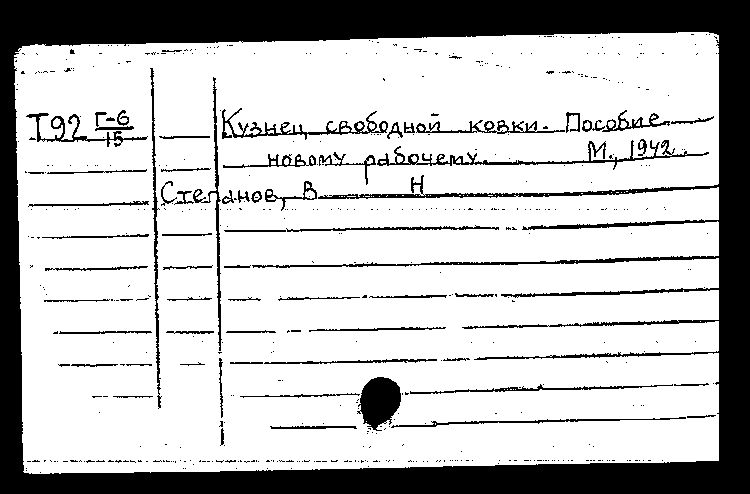 Т92 Г-6/15 Кузнец свободной ковки. Пособие
новому рабочему. М., 1942.
Степанов, В Н